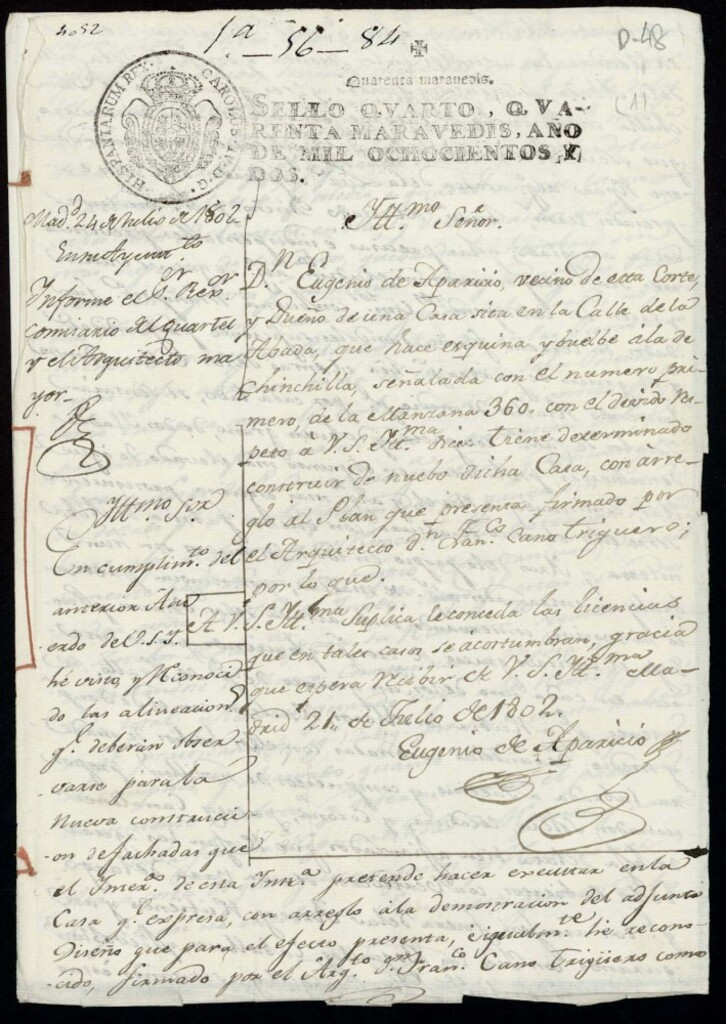 4052
1ª - 56 - 84
D-48
(1)
HISPANIARUM REX. CAROLUS IV D. G.
Quarenta maravedis.
SELLO QVARTO, QVA-
RENTA MARAVEDIS, AÑO
DE MIL OCHOCIENTOS Y
DOS.
Mad.d 24 de Julio de 1802
En su Ayunt.to
Informe el S.or Rex.or
comisario del quartel
y el Arquitecto ma
yor-
Ill.mo Señor.
D.n Eugenio de Aparicio, vecino de esta Corte,
y Dueño de una Casa sita en la Calle de la
Abada, que hace esquina y buelbe á la de
Chinchilla, señalada con el numero pri-
mero, de la Manzana 360. con el devido res-
peto á V. S. Ill.ma dice: tiene determinado
construir de nuebo dicha Casa, con arre-
glo al Plan que presenta firmado por
el Arquitecto d.n Fran.co Cano Triguero;
por lo que.
A V. S. Ill.ma Suplica le conceda las licencias
que en tales casos se acostumbran, gracia
que espera recibir de V. S. Ill.ma Ma-
drid 21 de Julio de 1802.
Eugenio de Aparicio
Ill.mo S.or
En cumplim.to del
anterior Acu
erdo de V.S.I.
hé visto, y reconoci
do las alineacion.s
q.e deberán obser-
varse para la
nueva construcci-
on de fachadas que
el Inter.do de esta Inst.a pretende hacer executar en la
Casa q.e expresa, con arreglo á la demostracion del adjunto
Diseño que para el efecto presenta, é igualm.te hé recono-
cido, firmado por el Arq.to D.n Fran.co Cano Trigüero como